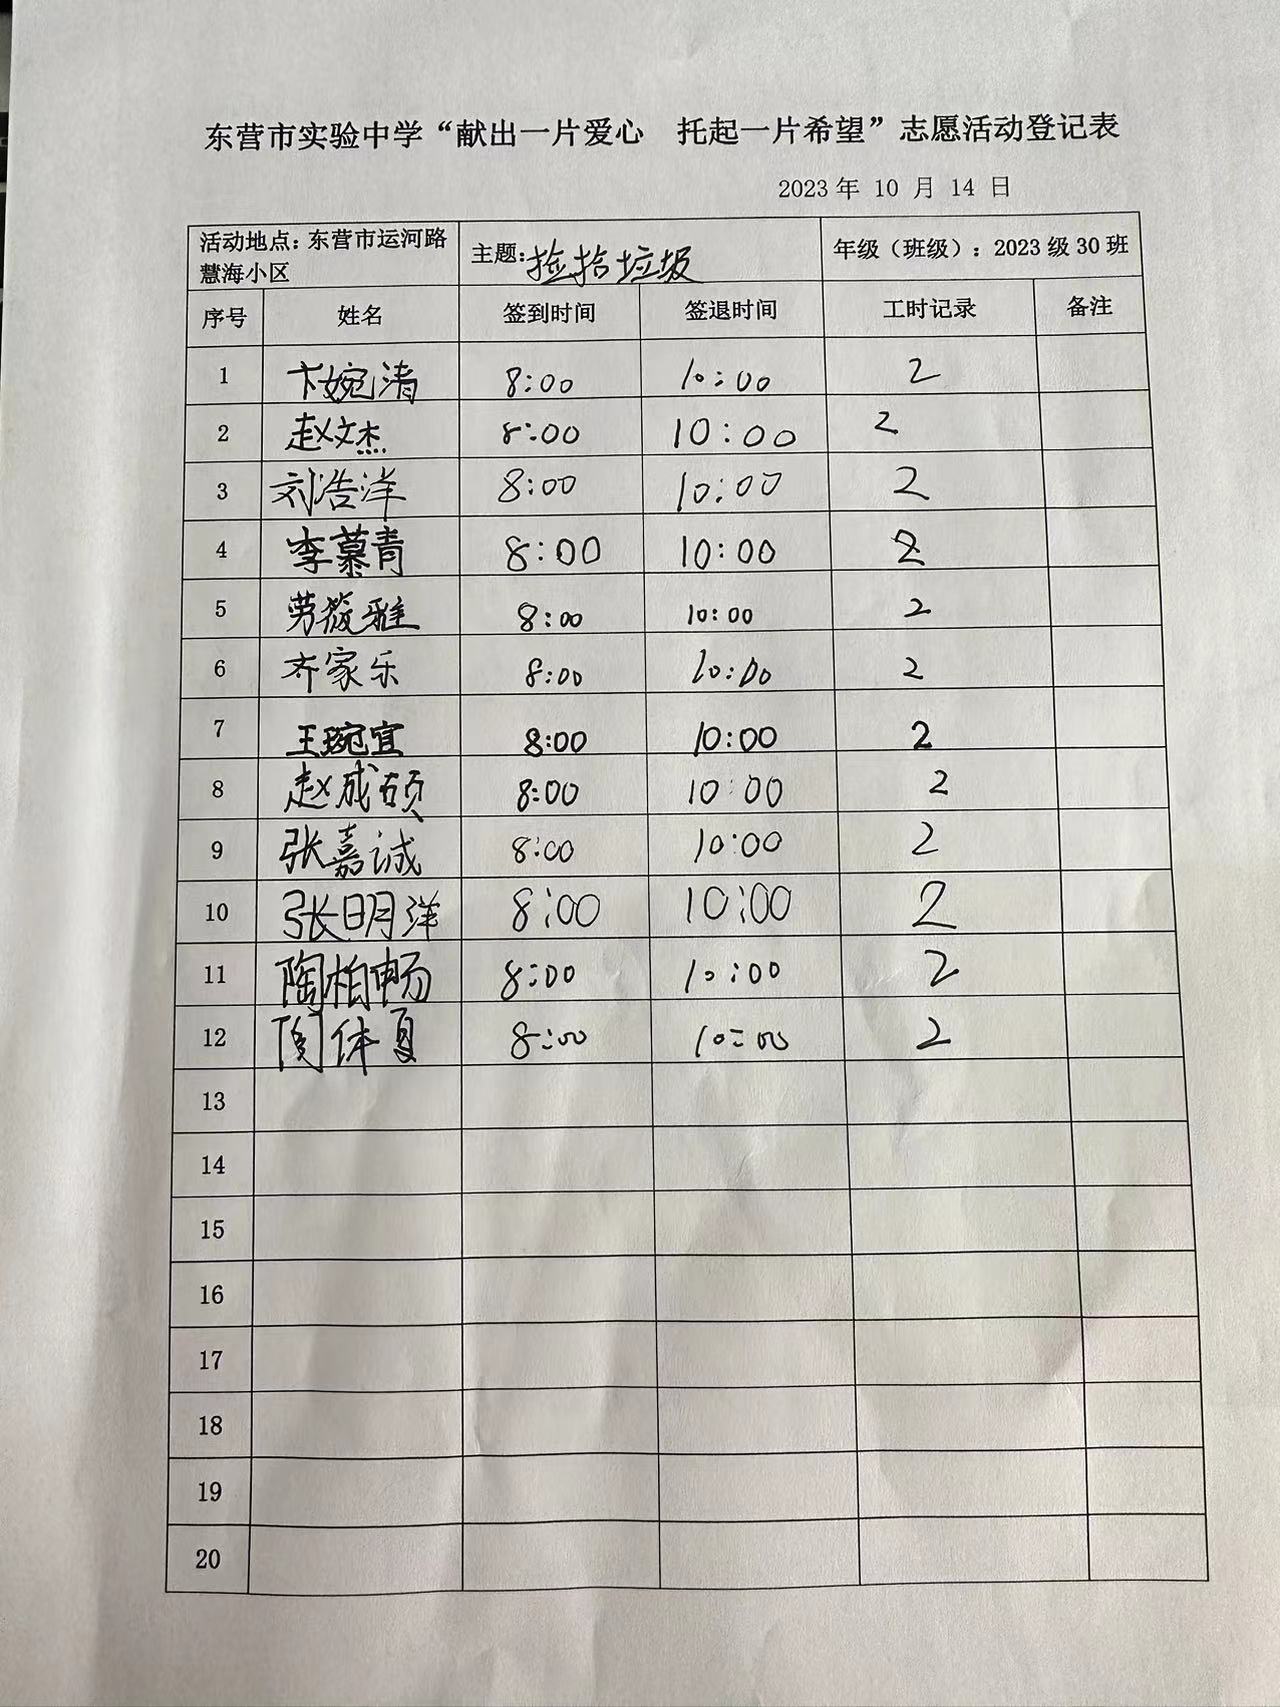 东营市实验中学“献出一片爱心 托起一片希望”志愿活动登记表
2023 年 10 月 14 日
活动地点：东营市运河路慧海小区 主题：捡拾垃圾 年级（班级）：2023 级 30 班
序号 姓名 签到时间 签退时间 工时记录 备注
1 卞婉清 8:00 10:00 2
2 赵文杰 8:00 10:00 2
3 刘浩洋 8:00 10:00 2
4 李慕青 8:00 10:00 2
5 劳筱雅 8:00 10:00 2
6 齐家乐 8:00 10:00 2
7 王琬宜 8:00 10:00 2
8 赵成硕 8:00 10:00 2
9 张嘉诚 8:00 10:00 2
10 张明洋 8:00 10:00 2
11 陶柏畅 8:00 10:00 2
12 8:00 10:00 2
13
14
15
16
17
18
19
20